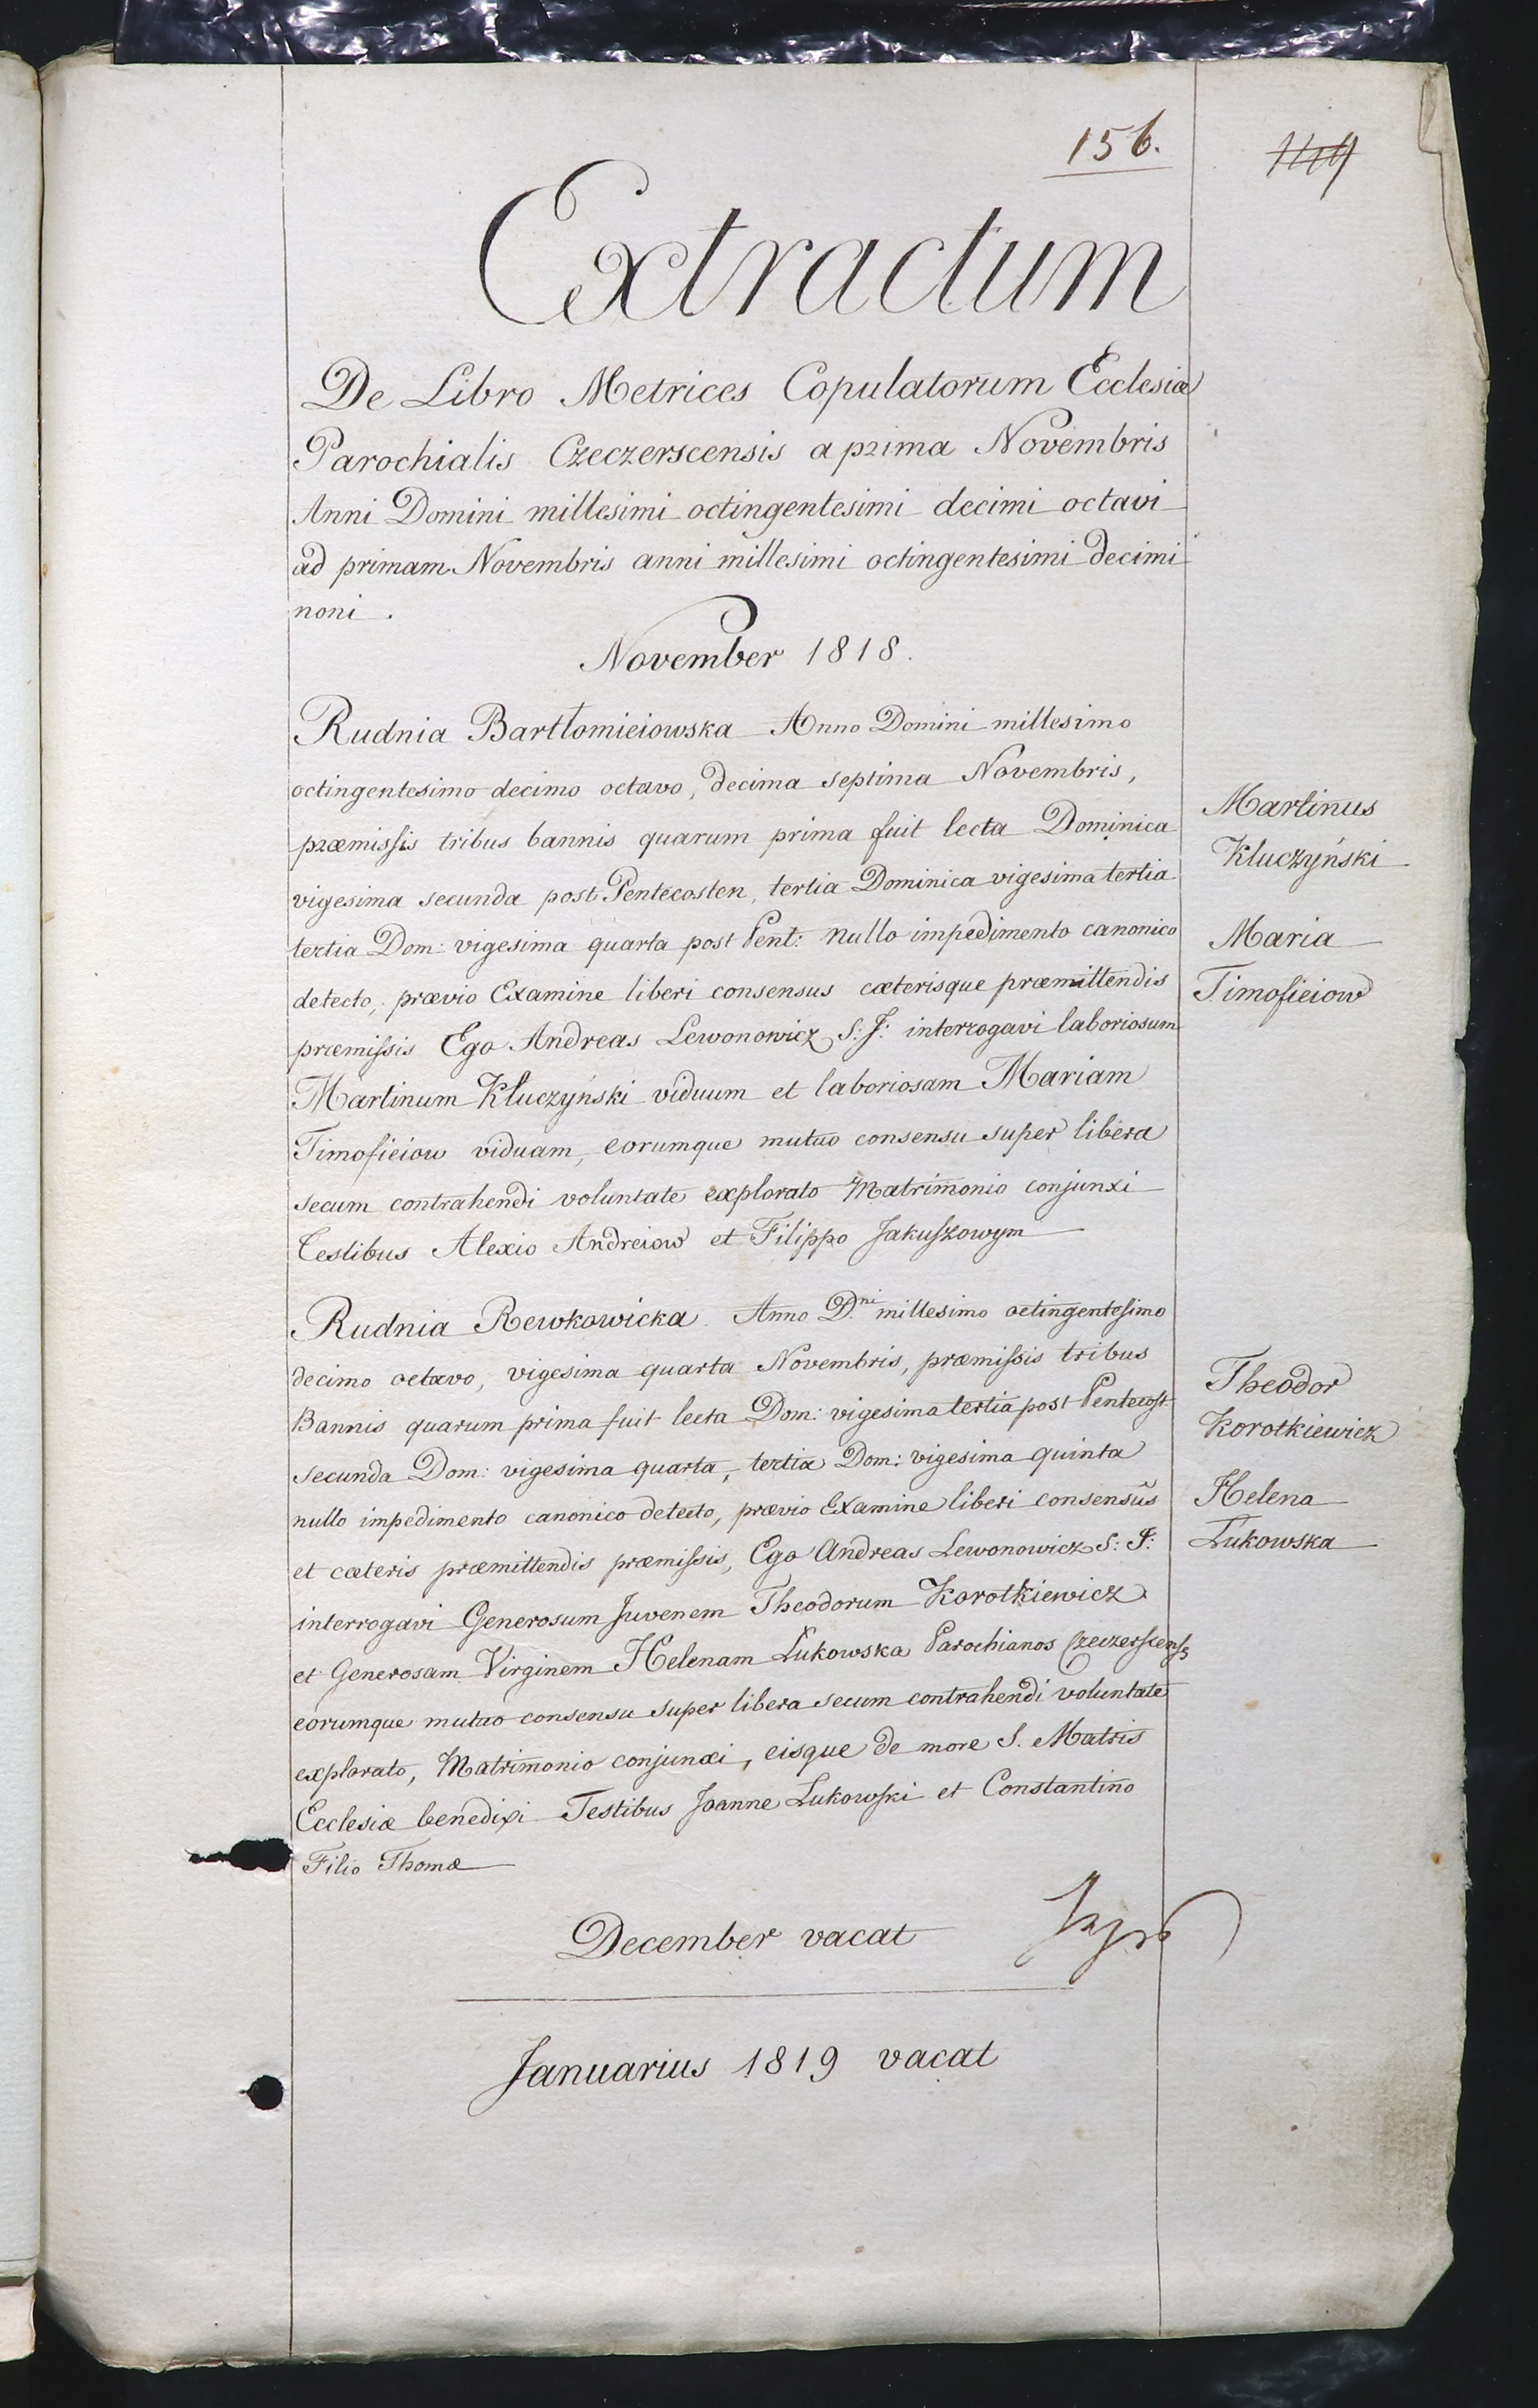 156.
149
Extractum
De Libro Metrices Copulatorum Ecclesiæ
Parochialis Czeczerscensis a prima Novembris
Anni Domini millesimi octingentesimi decimi octavi
ad primam Novembris anni millesimi octingentesimi decimi
noni.
November 1818.
Rudnia Bartłomieiowska Anno Domini millesimo
octingentesimo decimo octavo, decima septima Novembris,
præmissis tribus bannis quarum prima fuit lecta Dominica
vigesima secunda post Pentecosten, tertia Dominica vigesima tertia
tertia Dom: vigesima quarta post Pent: nullo impedimento canonico
detecto, prævio Examine liberi consensus cæterisque præmittendis
præmissis Ego Andreas Lewonowicz S: J: interrogavi laboriosum
Martinum Kluczyński viduum et laboriosam Mariam
Timofieiow viduam, eorumque mutuo consensu super libera
secum contrahendi voluntate explorato Matrimonio conjunxi
Testibus Alexio Andreiow et Filippo Jakuszowym
Martinus
Kluczyński
Maria
Timofieiow
Rudnia Rewkowicka. Anno D.ni millesimo octingentesimo
decimo octavo, vigesima quarta Novembris, præmissis tribus
Bannis quarum prima fuit lecta Dom: vigesima tertia post Pentecost
secunda Dom: vigesima quarta, tertia Dom: vigesima quinta
nullo impedimento canonico detecto, prævio Examine liberi consensûs
et cæteris præmittendis præmissis, Ego Andreas Lewonowicz S: J:
interrogavi Generosum Juvenem Theodorum Korotkiewicz
et Generosam Virginem Helenam Łukowska Parochianos Czeczerscenses
eorumque mutuo consensu super libera secum contrahendi voluntate
explorato, Matrimonio conjunxi, eisque de more S. Matris
Ecclesiæ benedixi Testibus Joanne Łukowski et Constantino
Filio Thomæ
Theodor
Korotkiewicz
Helena
Łukowska
December vacat
Januarius 1819 vacat